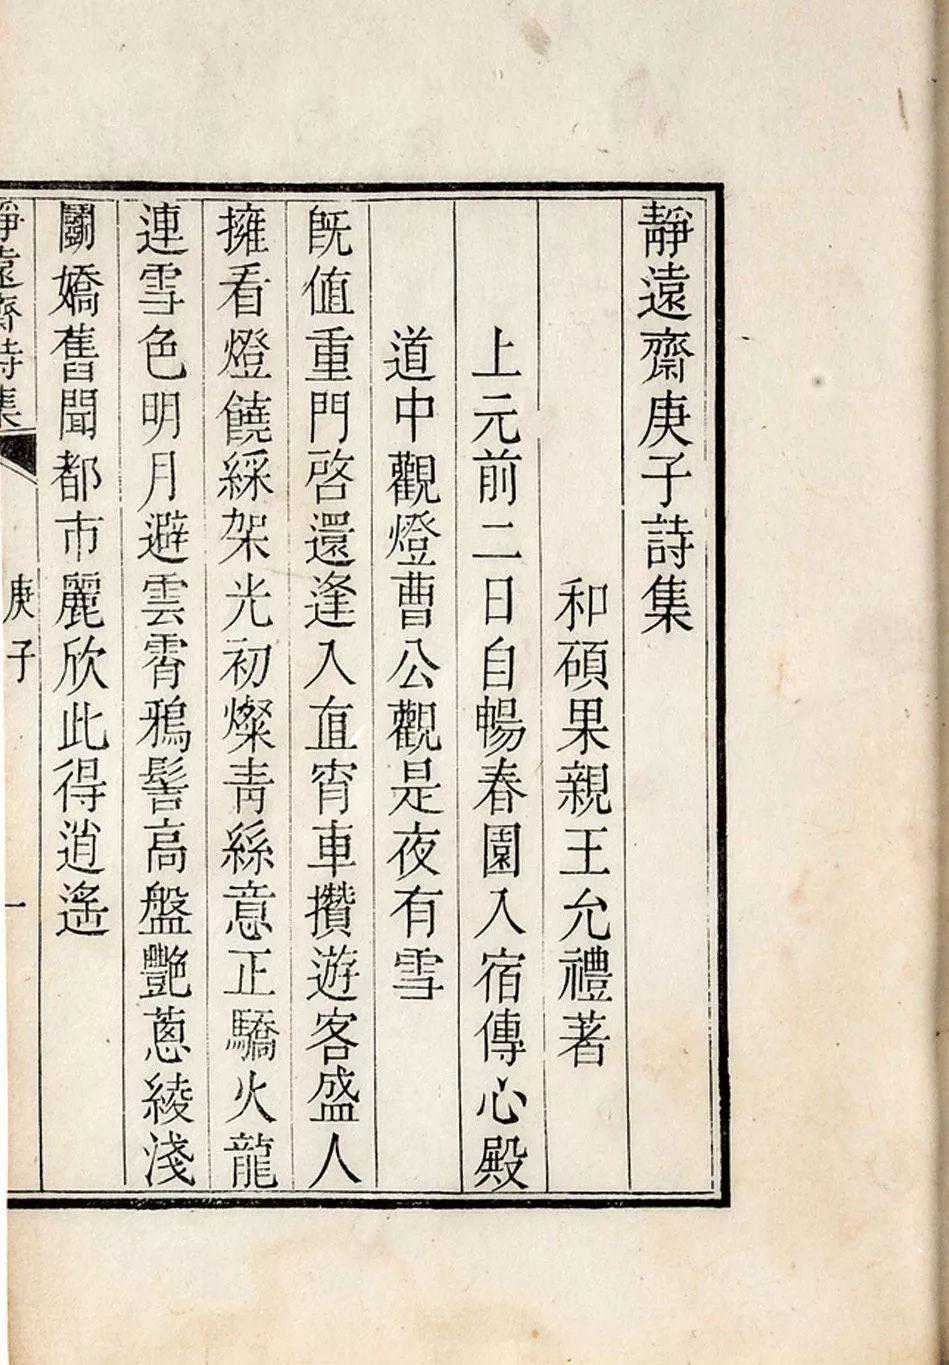 靜遠齋庚子詩集
和碩果親王允禮著
上元前二日自暢春園入宿傳心殿
道中觀燈曹公觀是夜有雪
旣值重門啓還逢入直宵車攢遊客盛人
擁看燈饒綵架光初燦青絲意正驕火龍
連雪色明月避雲霄鴉髻高盤艷蔥綾淺
鬭嬌舊聞都市麗欣此得逍遙
靜遠齋詩集
庚子
一